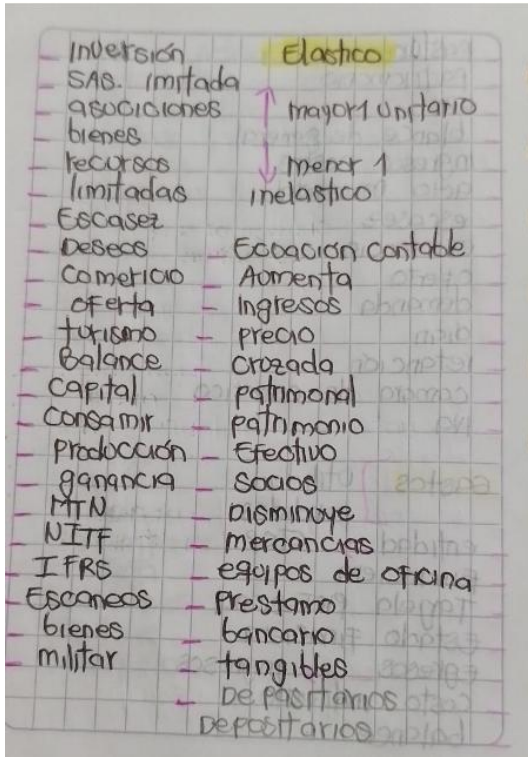 - Inversión
- SAS. Imitada
- asociciones
- bienes
- recursos
- limitadas
- Escasez
- Deseos
- Comericio
- oferta
- turismo
- Balance
- capital
- Consamir
- producción
- ganancia
- MTN
- NITF
- IFRS
- Escaneos
- bienes
- militar
Elastico
mayor 1 Unitario
menor 1
inelastico
- Ecoación contable
- Aumenta
- Ingresos
- precio
- Crozada
- patrimonal
- patrimonio
- Efectivo
- Socios
- Disminuye
- mercancias
- equipos de oficina
- Prestamo
- bancario
- tangibles
- Depasitarios
Depositarios